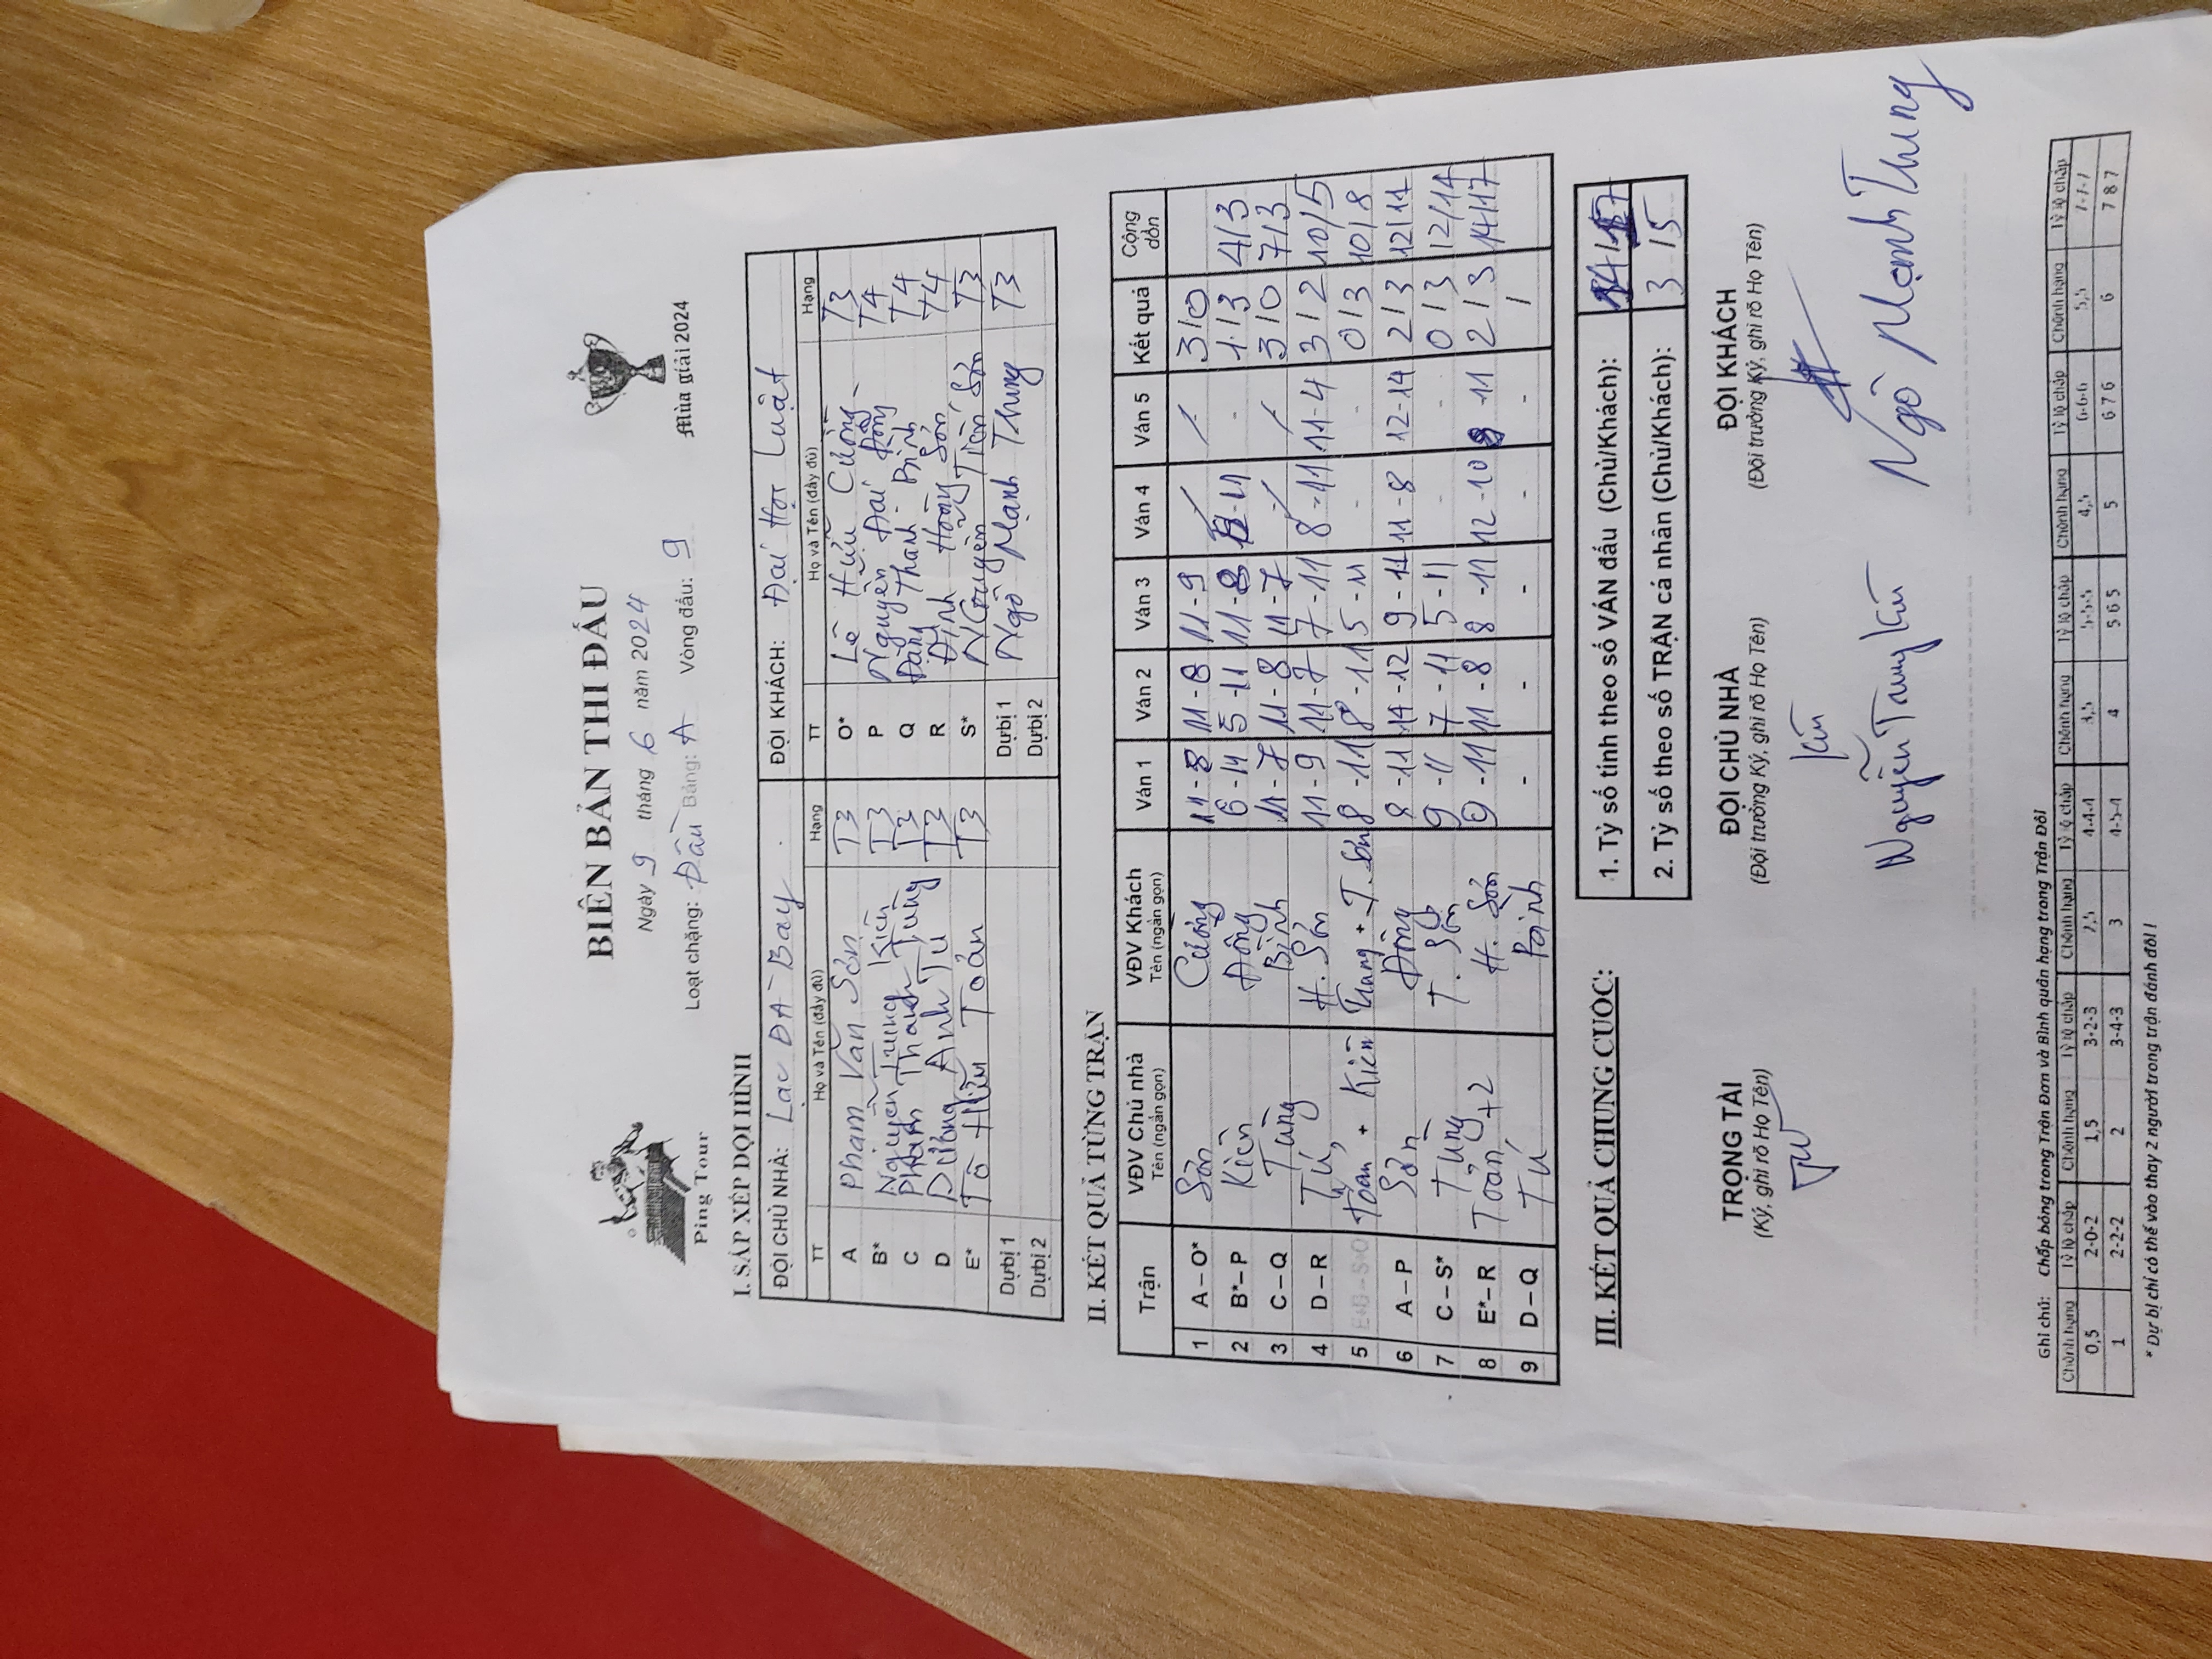 BIÊN BẢN THI ĐẤU
Ping Tour
Ngày 9 tháng 6 năm 2024
Loạt chặng: Đầu Bảng: A Vòng đấu: 9
Mùa giải 2024
I. SẮP XẾP ĐỘI HÌNH
ĐỘI CHỦ NHÀ: Lạc ĐÀ Bay. ĐỘI KHÁCH: Đại Học Luật
TT Họ và Tên (đầy đủ) Hạng TT Họ và Tên (đầy đủ) Hạng
A Phạm Văn Sơn T3 O* Lê Hữu Cường T3
B* Nguyễn Trung Kiên T3 P Nguyễn Đại Đồng T4
C Phạm Thanh Tùng T3 Q Đặng Thanh Bình T4
D Dương Anh Tú T3 R Đinh Hoàng Sơn T4
E* Tô Hữu Toản T3 S* Nguyễn Tiến Sơn T3
Dự bị 1 Dự bị 1 Ngô Mạnh Thung T3
Dự bị 2 Dự bị 2
II. KẾT QUẢ TỪNG TRẬN
Trận VĐV Chủ nhà Tên (ngắn gọn) VĐV Khách Tên (ngắn gọn) Ván 1 Ván 2 Ván 3 Ván 4 Ván 5 Kết quả Cộng dồn
1 A – O* Sơn Cường 11-8 11-8 11-9 3/0
2 B* – P Kiên Đồng 6-11 5-11 11-8 -11 - 1/3 4/3
3 C – Q Tùng Bình 11-7 11-8 11-7 3/0 7/3
4 D – R Tú H. Sơn 11-9 11-7 7-11 8-11 11-4 3/2 10/5
5 Toản + Kiên Thung + T. Sơn 8-11 8-11 5-11 - - 0/3 10/8
6 A – P Sơn Đồng 8-11 14-12 9-11 11-8 12-14 2/3 12/11
7 C – S* Tùng T. Sơn 9-11 7-11 5-11 - - 0/3 12/14
8 E* – R Toản +2 H. Sơn 9-11 11-8 8-11 12-10 9-11 2/3 14/17
9 D – Q Tú Bình - - - - - /
III. KẾT QUẢ CHUNG CUỘC:
1. Tỷ số tính theo số VÁN đấu (Chủ/Khách): 14/17
2. Tỷ số theo số TRẬN cá nhân (Chủ/Khách): 3/5
TRỌNG TÀI ĐỘI CHỦ NHÀ ĐỘI KHÁCH
(Ký, ghi rõ Họ Tên) (Đội trưởng Ký, ghi rõ Họ Tên) (Đội trưởng Ký, ghi rõ Họ Tên)
Nguyễn Trung Kiên Ngô Mạnh Thung
Ghi chú: Chấp bóng trong Trận Đơn và Bình quân hạng trong Trận Đôi
Chênh hạng Tỷ lệ chấp Chênh hạng Tỷ lệ chấp Chênh hạng Tỷ lệ chấp Chênh hạng Tỷ lệ chấp Chênh hạng Tỷ lệ chấp Chênh hạng Tỷ lệ chấp Chênh hạng Tỷ lệ chấp
0,5 2-0-2 1,5 3-2-3 2,5 4-4-4 3,5 5-5-5 4,5 6-6-6 5,5 7-7-7
1 2-2-2 2 3-4-3 3 4-5-4 4 5 6 5 5 6 7 6 6 7 8 7
* Dự bị chỉ có thể vào thay 2 người trong trận đánh đôi !